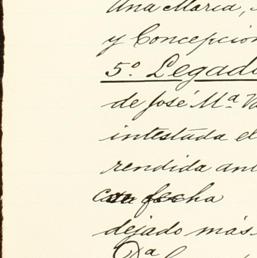 Una María,
y Concepción
5º Legado
de José Mª
intestada el
rendida an
fecha
dejado más